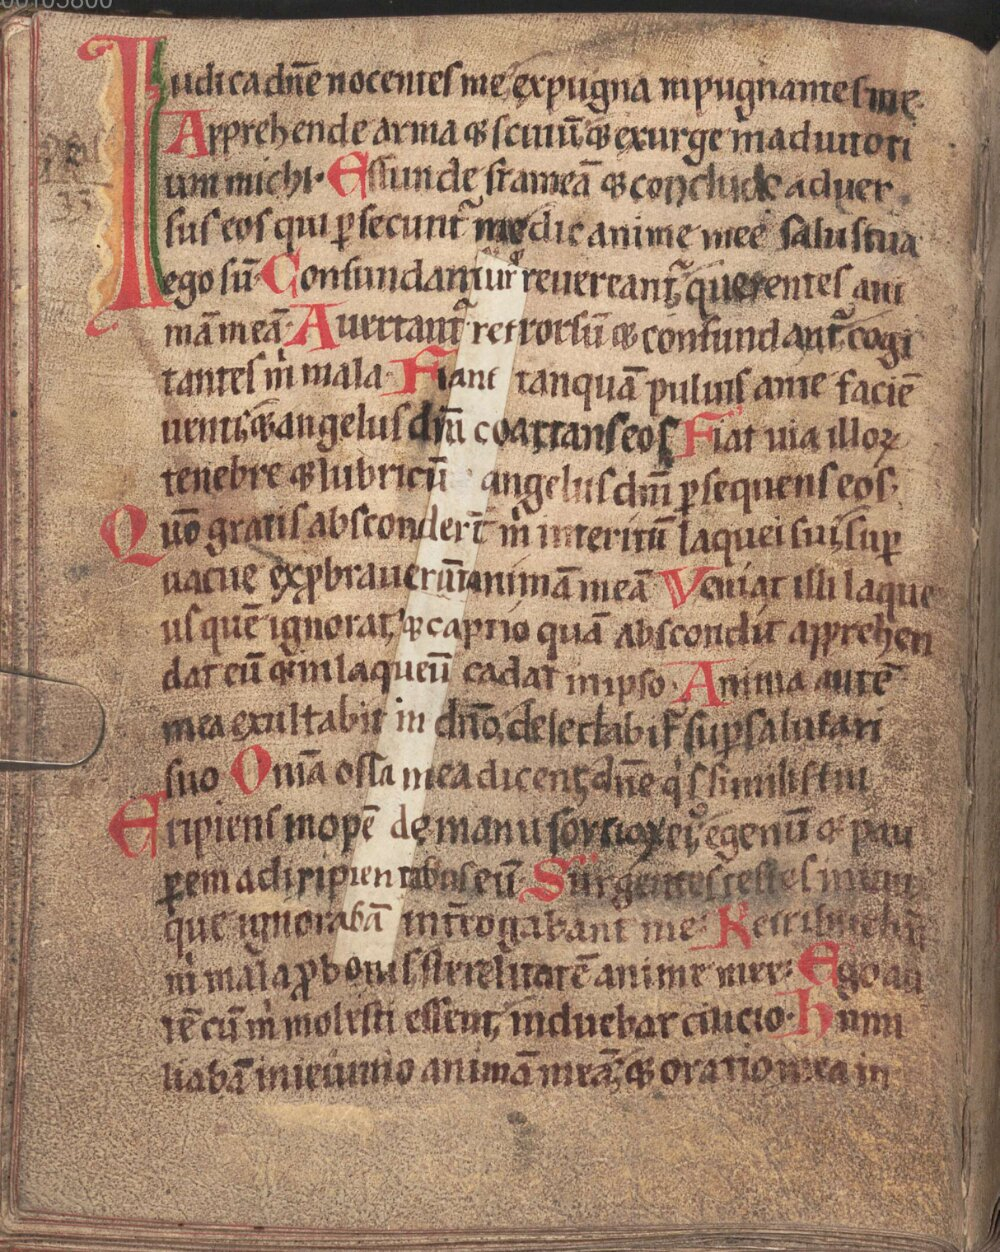 Iudica dn̄e nocentes me expugna inpugnantes me.
Apprehende arma & scutū & exurge in adiutori
um michi. Effunde frameā & conclude aduer
sus eos qui ꝑsecunt᷑ me dic anime mee salus tua
ego sū. Confundantur & reuereant᷑, querentes ani
mā meā. Auertant᷑ retrorsū & confundant᷑ cogi
tantes m̄ mala. Fiant tanquā puluis ante faciē
uenti, & angelus dn̄i coartans eos. Fiat uia illoꝝ
tenebre & lubricū & angelus dn̄i ꝑsequens eos.
Quō gratis abscondert̄ m̄ interitū laquei sui, suꝑ
uacue exꝑbrauerūt animā meā. Veniat illi laque
us quē ignorat, & captio quā abscondit apprehen
dat eū & in laqueū cadat in ipso. Anima autē
mea exultabit in dn̄o, delectabit᷑ suꝑ salutari
suo. Om̄ia ossa mea dicent, dn̄e q's similis tui
Eripiens inopē de manu fortioꝝ ei᷒, egenū & pau
ꝑem a diripientibus eū. Surgentes testes iniqui
que ignorabā int̄rogabant me. Retribuebāt
m̄ mala ꝓ bonis sterelitatē anime mee. Ego au
tē cū m̄ molesti essent, induebar cilicio. Humi
liabā in ieiunio animā meā, & oratio mea in